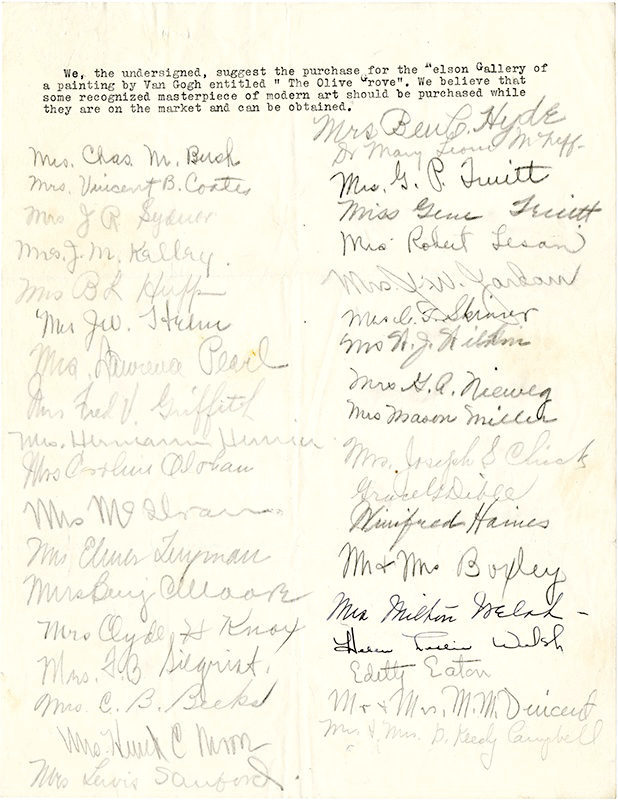 We, the undersigned, suggest the purchase for the "elson Gallery of
a painting by Van Gogh entitled " The Olive Grove". We believe that
some recognized masterpiece of modern art should be purchased while
they are on the market and can be obtained.
Mrs. Chas. M. Bush
Mrs. Vincent B. Coates
Mrs J R Sydnor
Mrs. J. M. Kelley.
Mrs B L Huff
Mrs J W. Helm
Mrs. Lawrence Pearl
Mrs Fred V. Griffith
Mrs. Hermann
Mrs Caroline
Mrs McIlvain
Mrs Elmer
Mrs Benj C Moore
Mrs Clyde H Knox
Mrs. F. B. Gilgrist.
Mrs. C. B. Beeks
Mrs. C Nixon
Mrs Lewis Sanford
Mrs Ben C. Hyde
Dr Mary
Mrs. G. P. Truitt
Miss Gene Truitt
Mrs Robert Lesan
Mrs.
Mrs. C. F. Skinner
Mrs W. J.
Mrs G. A. Nieweg
Mrs Mason Miller
Mrs. Joseph S Chick
Grace G Dibee
Winifred Haines
Mr & Mrs Boxley
Mrs Milton Welsh –
Helen Welsh
Edetty Eaton
Mr & Mrs. M. M. Vincent
Mr. & Mrs. D. Keedy Campbell